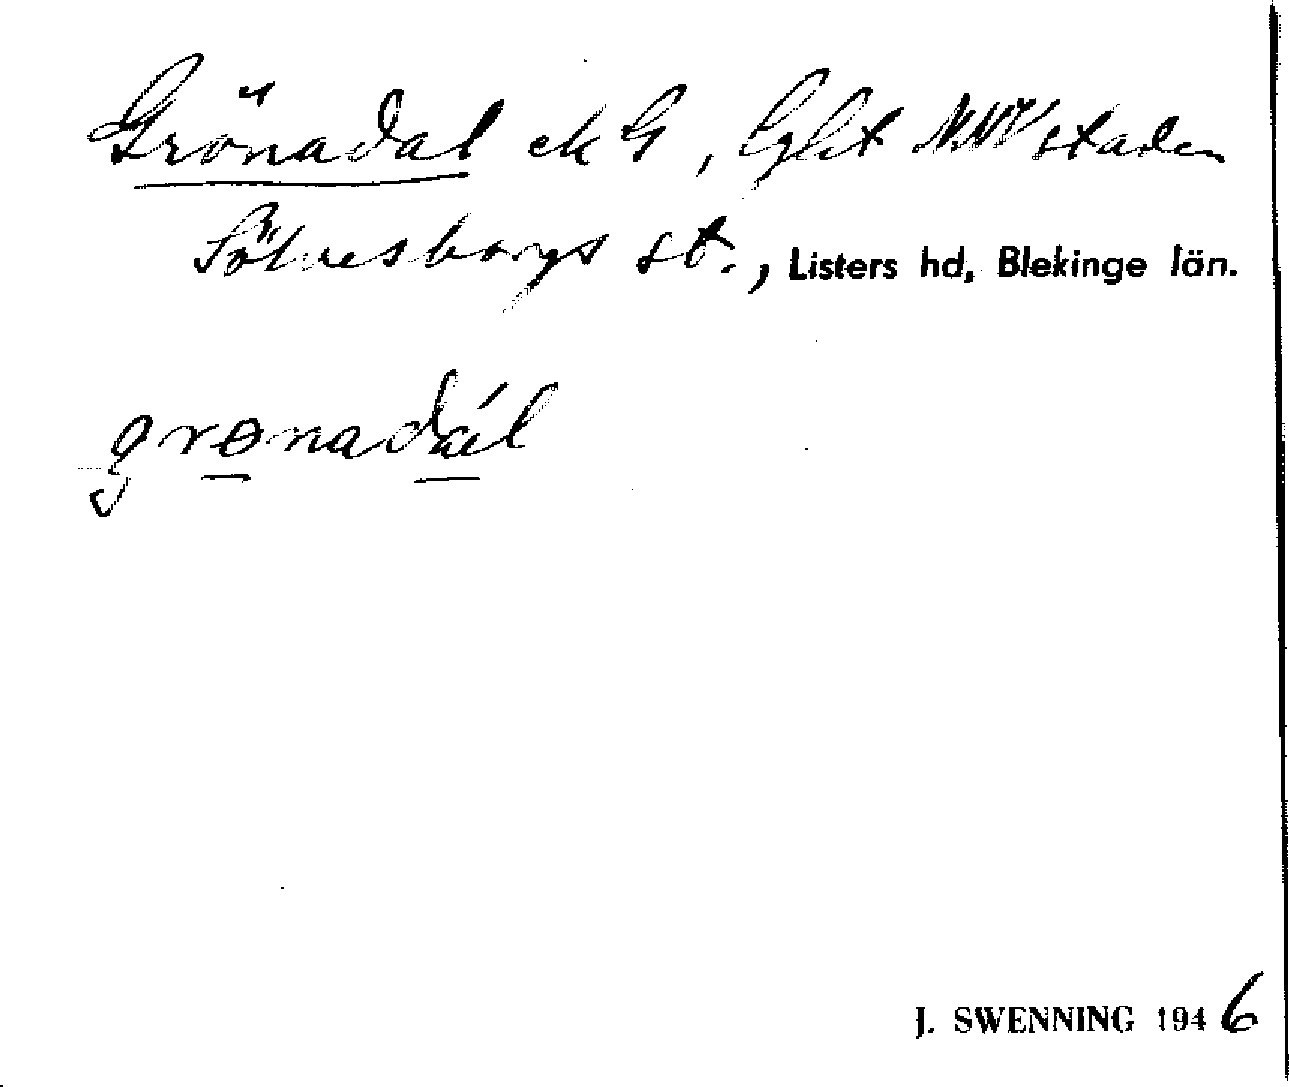 Grönadal ek G, lght NNV staden
Sölvesborgs st., Listers hd, Blekinge län.
grønadál
J. SWENNING 1946